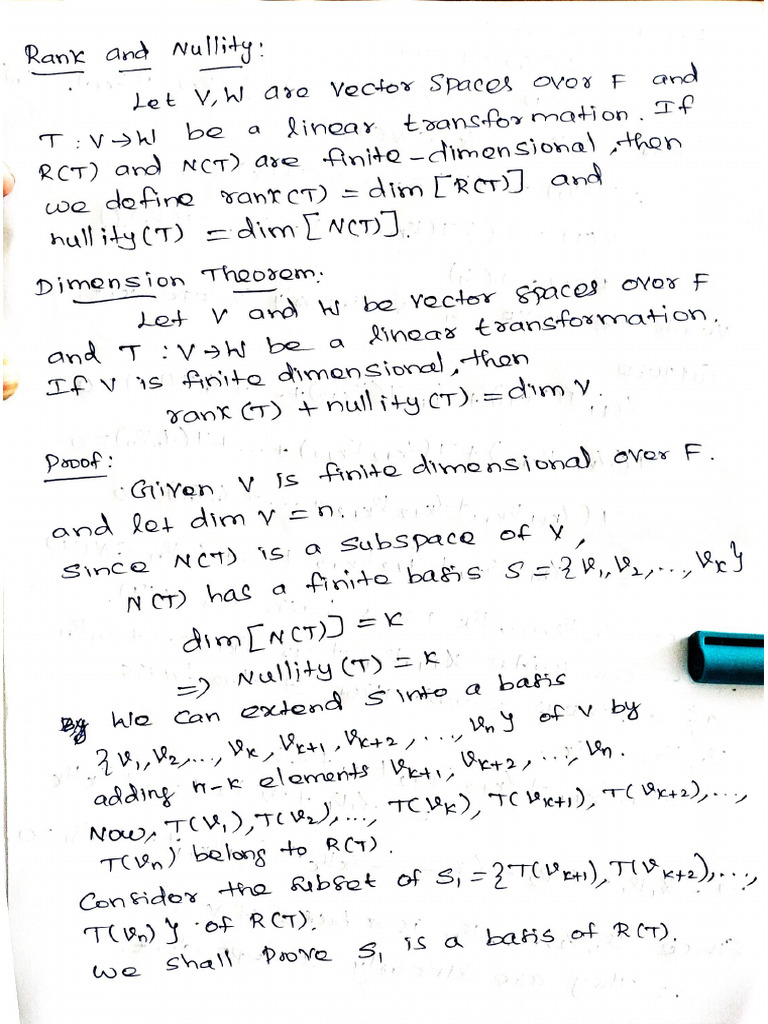 Rank and Nullity:
Let V, W are vector spaces over F and
T : V → W be a linear transformation. If
R(T) and N(T) are finite-dimensional, then
we define rank(T) = dim [R(T)] and
nullity(T) = dim [N(T)].
Dimension Theorem:
Let V and W be vector spaces over F
and T : V → W be a linear transformation.
If V is finite dimensional, then
rank (T) + nullity (T) = dim V.
Proof:
Given V is finite dimensional over F.
and let dim V = n.
Since N(T) is a subspace of V,
N(T) has a finite basis S = {v₁, v₂, ..., vₖ}
dim [N(T)] = k
=> Nullity (T) = k
We can extend S into a basis
{v₁, v₂, ..., vₖ, vₖ₊₁, vₖ₊₂, ..., vₙ} of V by
adding n-k elements vₖ₊₁, vₖ₊₂, ..., vₙ.
Now, T(v₁), T(v₂), ..., T(vₖ), T(vₖ₊₁), T(vₖ₊₂), ...,
T(vₙ) belong to R(T).
Consider the subset of S₁ = {T(vₖ₊₁), T(vₖ₊₂), ...,
T(vₙ)} of R(T).
We shall prove S₁ is a basis of R(T).